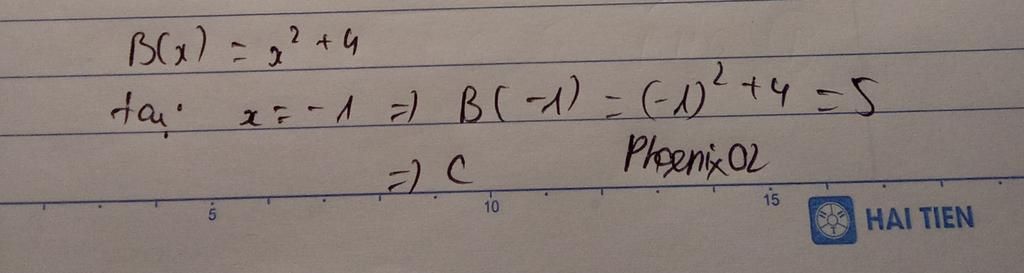 B(x) = x² + 4
tại x = -1 => B(-1) = (-1)² + 4 = 5
=> C Phoenix02
5 10 15
HAI TIEN